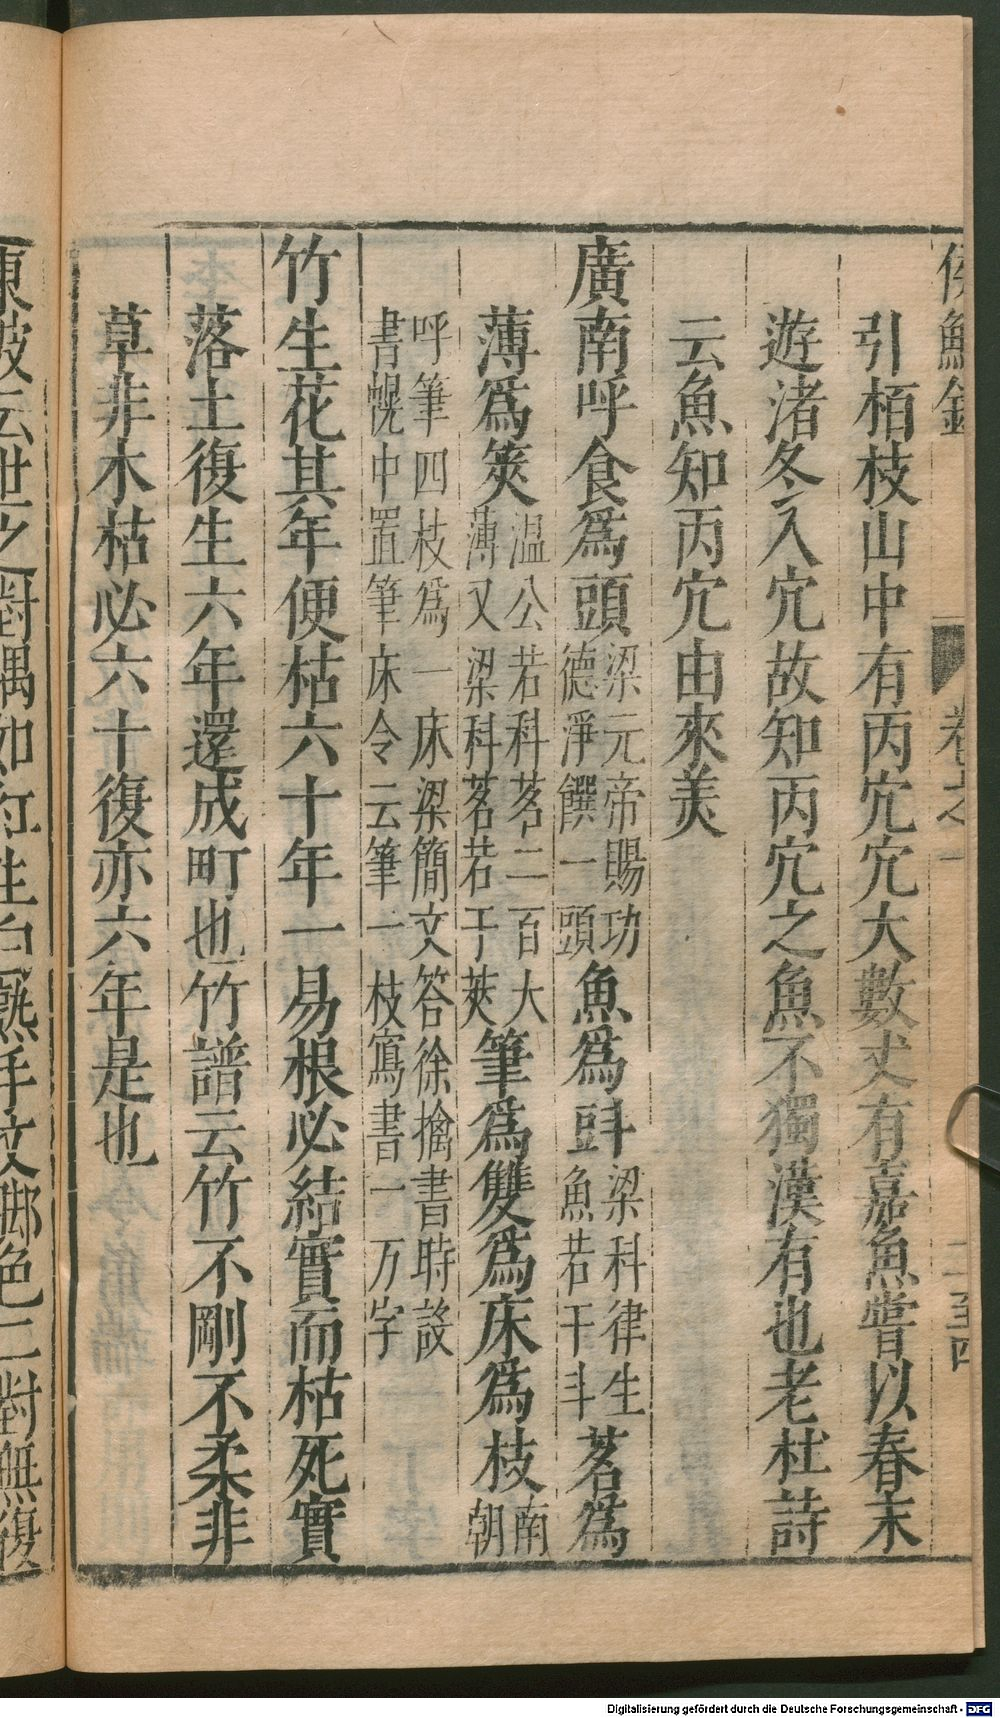 侯鯖錄 卷之一
引栢枝山中有丙穴穴大數丈有嘉魚嘗以春末
遊渚冬入穴故知丙穴之魚不獨漢有也老杜詩
云魚知丙穴由來美
廣南呼食爲頭梁元帝賜功德淨饌一頭魚爲㪷梁科律生魚若干斗茗爲
薄爲筴温公若科茗二百大薄又梁科茗若于筴筆爲雙爲床爲枝南朝
呼筆四枝爲一床梁簡文答徐擒書時設書幌中置筆床令云筆一枝寫書一万字
竹生花其年便枯六十年一易根必結實而枯死實
落土復生六年還成町也竹譜云竹不剛不柔非
草非木枯必六十復亦六年是也
東坡云世之對偶如紅生白熟手文脚色二對無復
Digitalisierung gefördert durch die Deutsche Forschungsgemeinschaft - DFG